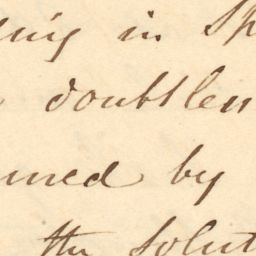 ing in Sp
doubtless
med by
the solut